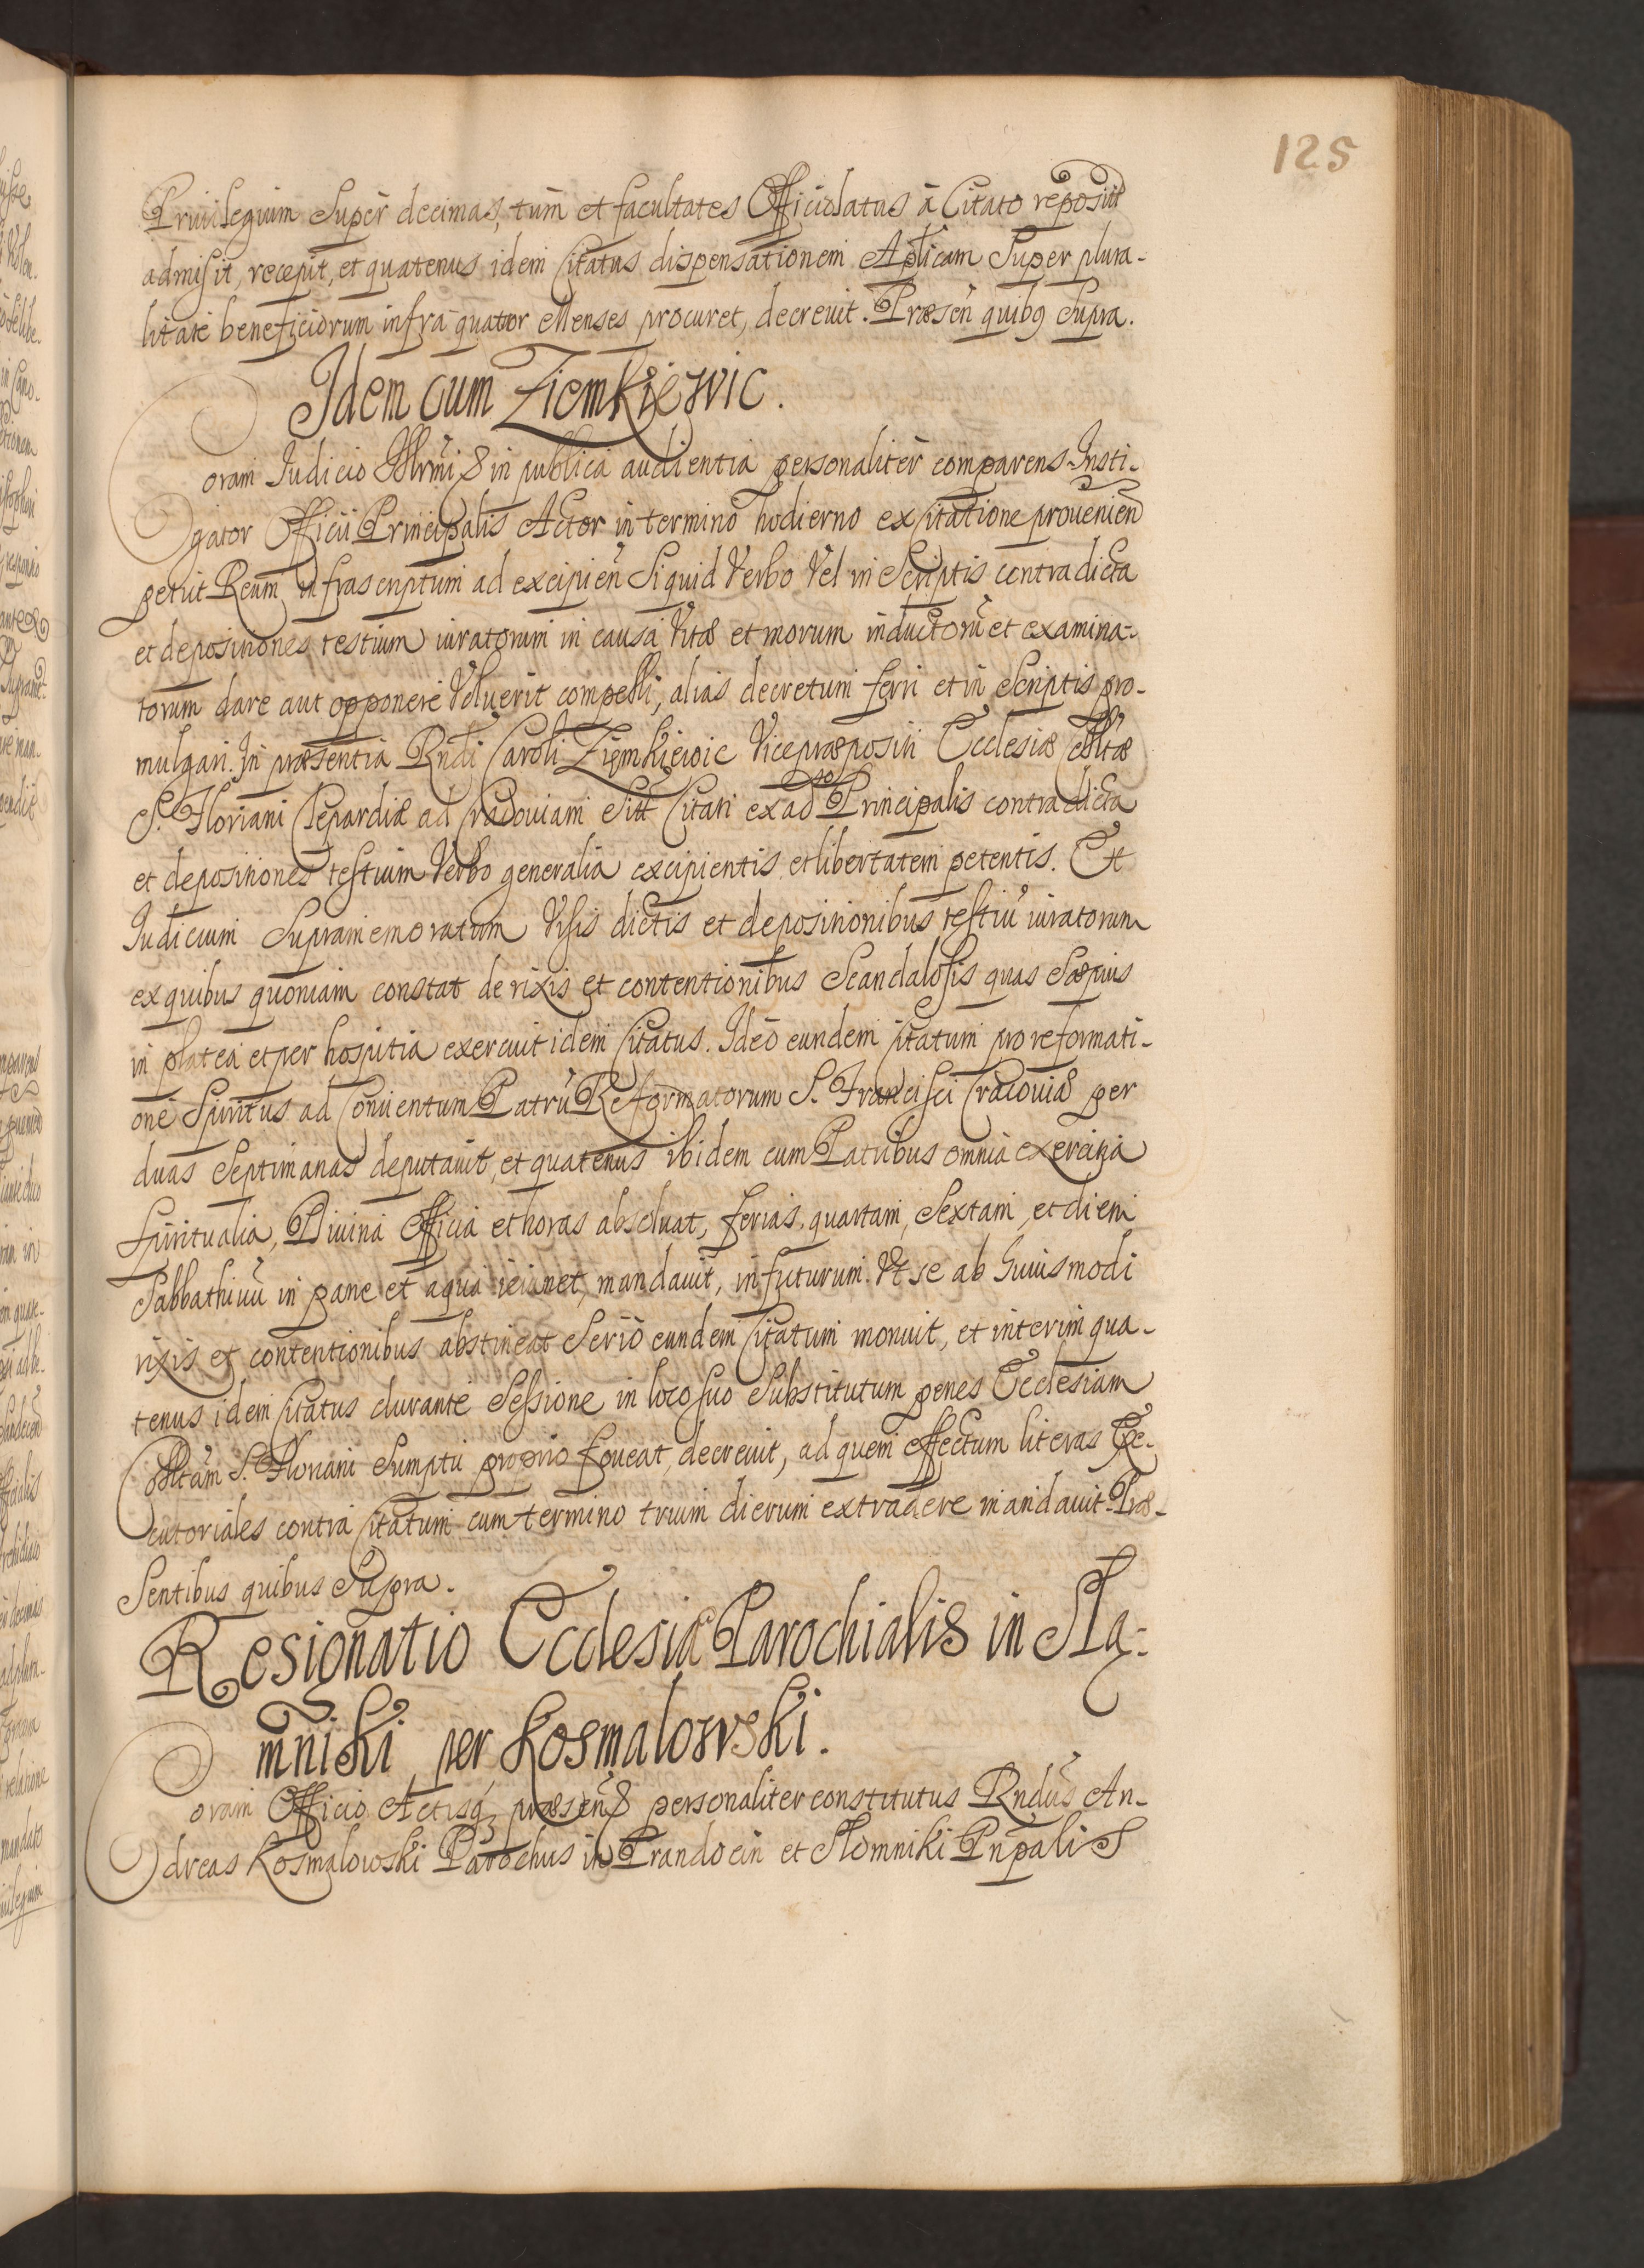 125
Priuilegium Super decimas, tum et facultates Officiolatus à Citato reposit
admisit, recepit, et quatenus idem Citatus dispensationem Aplicam Super plura-
litate beneficiorum infra quatuor Menses procuret, decreuit. Præsen quibq Supra.
Idem cum Ziemkiewic.
Coram Iudicio Illrmi & in publica audientia personaliter comparens Insti-
gator Officii Principalis Actor in termino hodierno ex Citatione prouenien
petiit Reum infrascriptum ad excipien Siquid Verbo Vel in Scriptis contra dicta
et depositiones testium iuratorum in causa Vitæ et morum inductorũ et examina-
torum dare aut opponere Voluerit compelli, alias decretum ferri et in Scriptis pro-
mulgari. In præsentia Rndi Caroli Ziemkiewic Vicepræpositi Ecclesiæ Colltæ
S. Floriani Clepardiæ ad Cracouiam Siti Citati ex ad so Principalis contra dicta
et depositiones testium Verbo generalia excipientis et libertatem petentis. Et
Iudicium Supramemoratum Visis dictis et depositionibus testiũ iuratorum
ex quibus quoniam constat de rixis et contentionibus Scandalosis quas Sæpius
in platea et per hospitia exercuit idem Citatus. Ideo eundem Citatum pro reformati-
one Spiritus ad Conuentum Patrũ Reformatorum S. Francisci Cracouiæ per
duas Septimanas deputauit, et quatenus ibidem cum Patribus omnia exercitia
Spiritualia, Diuina Officia et horas absoluat, ferias, quartam, Sextam, et diem
Sabbathinũ in pane et aqua ieiunet, mandauit, in futurum. Vt se ab huiusmodi
rixis et contentionibus abstineat Serio eundem Citatum monuit, et interim qua-
tenus idem Citatus durante Sessione in loco suo Substitutum penes Ecclesiam
Colltam S. Floriani Sumptu proprio foueat, decreuit, ad quem effectum literas Exe-
cutoriales contra Citatum cum termino trium dierum extradere mandauit. Præ-
Sentibus quibus Supra.
Resignatio Ecclesiæ Parochialis in Sla-
mniki per Kosmalowski.
Coram Officio Actisq præsen & personaliter constitutus Rndus An-
dreas Kosmalowski Parochus in Prandocin et Slomniki Pnpalis